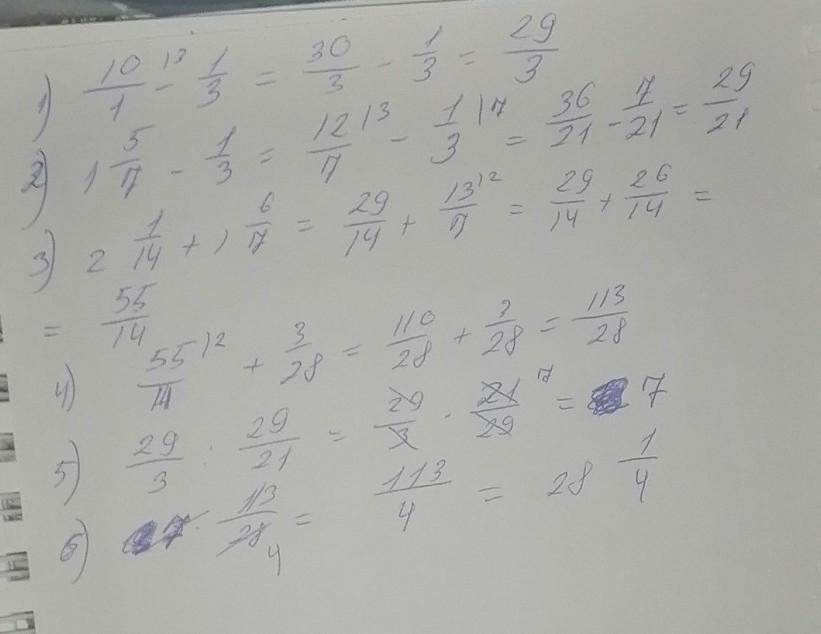 1) 10/1 |3 - 1/3 = 30/3 - 1/3 = 29/3
2) 1 5/7 - 1/3 = 12/7 |3 - 1/3 |7 = 36/21 - 7/21 = 29/21
3) 2 1/14 + 1 6/7 = 29/14 + 13/7 |2 = 29/14 + 26/14 =
= 55/14
4) 55/14 |2 + 3/28 = 110/28 + 3/28 = 113/28
5) 29/3 : 29/21 = 29/3 · 21/29 7 = 7
6) 7 · 113/28 4 = 113/4 = 28 1/4